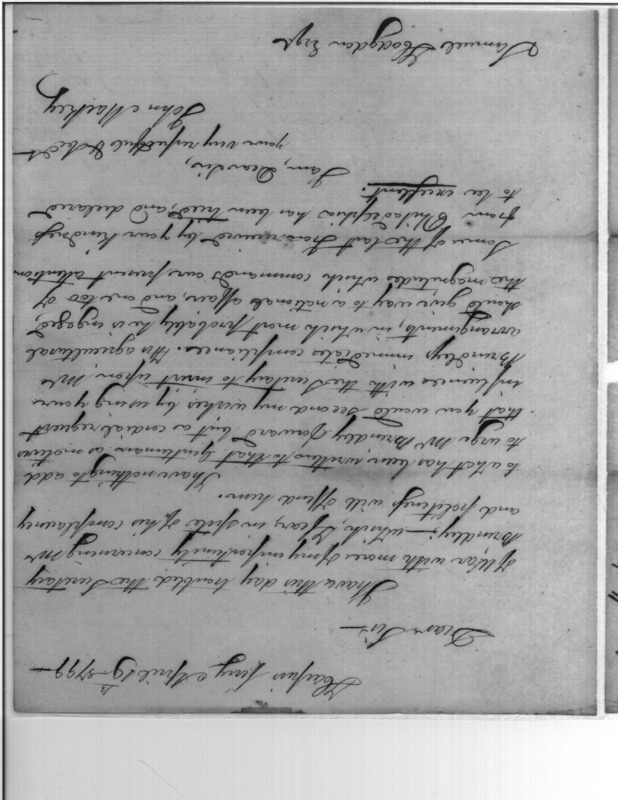 Harpers Ferry April 19th 1799—
Dear Sir—
I have this day troubled the Secretary
of War with more of my importunity concerning Mr
Brindley;—which, I fear, in spite of his complaisancy
and politeness will offend him.
I have nothing to add
to what has been written to that Gentleman as motives
to urge Mr Brindley forward but a cordial request
that you would second my wishes by using your
influence with the Secretary to insist upon Mr
Brindleys immediate compliance. His agricultural
arrangements, in which most probably he is ingaged,
should give way to a national affair, and one too of
the magnitude which commands our present attention
Some of the last Iron received by your kindness
from Philadelphia has been tried, and declared
to be excellent.
I am, Dear Sir,
your very respectful & obedt
John Mackey
Samuel Hodgdon Esqr